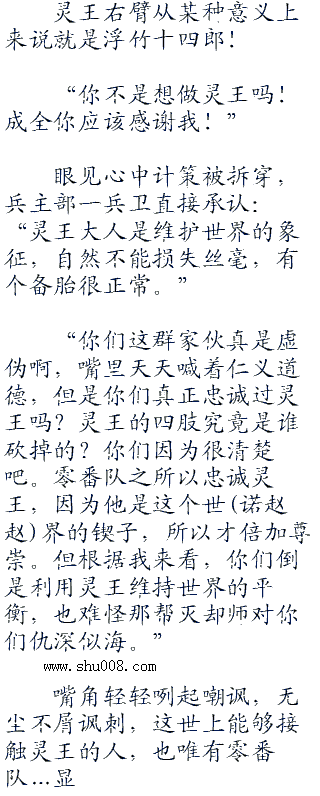 灵王右臂从某种意义上
来说就是浮竹十四郎！
“你不是想做灵王吗！
成全你应该感谢我！”
眼见心中计策被拆穿，
兵主部一兵卫直接承认：
“灵王大人是维护世界的象
征，自然不能损失丝毫，有
个备胎很正常。”
“你们这群家伙真是虚
伪啊，嘴里天天喊着仁义道
德，但是你们真正忠诚过灵
王吗？灵王的四肢究竟是谁
砍掉的？你们因为很清楚
吧。零番队之所以忠诚灵
王，因为他是这个世(诺赵
赵)界的锲子，所以才倍加尊
崇。但根据我来看，你们倒
是利用灵王维持世界的平
衡，也难怪那帮灭却师对你
们仇深似海。”
www.shu008.com
嘴角轻轻咧起嘲讽，无
尘不屑讽刺，这世上能够接
触灵王的人，也唯有零番
队…显